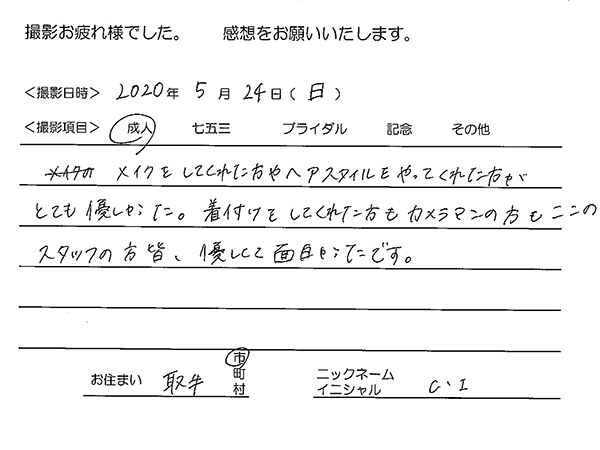 撮影お疲れ様でした。 感想をお願いいたします。
＜撮影日時＞ 2020年 5月 24日(日)
＜撮影項目＞ 成人 七五三 ブライダル 記念 その他
メイクをしてくれた方やヘアスタイルをやってくれた方が
とても優しかった。着付けをしてくれた方もカメラマンの方もここの
スタッフの方皆、優しくて面白かったです。
お住まい 取手 市町村 ニックネーム イニシャル C・I